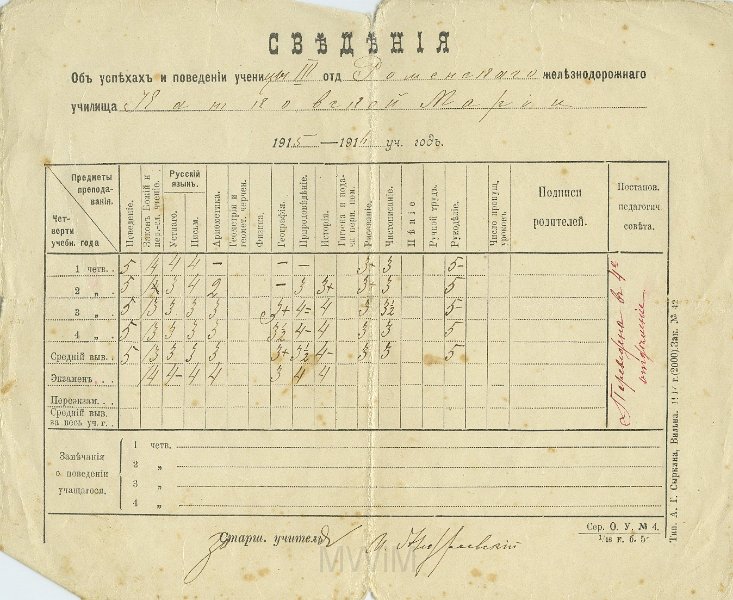 СВѢДѢНІЯ
Объ успѣхахъ и поведеніи ученицы III отд Роменскаго желѣзнодорожнаго
училища Марии
1915—1916 уч. годъ.
Предметы препода-ванія.
Четверти учебн. года
Поведеніе.
Законъ Божій и цер.-сл. чтеніе.
Русскій языкъ.
Устнаго.
Письм.
Ариѳметика.
Геометрія и геомет. черчен.
Физика.
Географія.
Природовѣдѣніе.
Исторія.
Гигіена и пода-
Рисованіе.
Чистописаніе.
Пѣніе
Ручной трудъ.
Рукодѣліе.
Число пропущ. уроковъ.
Подписи родителей.
Постанов. педагогич. совѣта.
1 четв. . 5 4 4 4 — — — 3+ 3 5-
2 „ 5 4 3 4 2 — 3 3+ 3+ 3 5
3 „ 5 3 3 3 3 3+ 4= 4 3 3½ 5
4 „ 5 3 3 3 3 3½ 4- 4 3 3 5
Средній выв. . 5 3 3 3 3 3+ 3½ 4- 3 3 5
Экзаменъ. . . 4 4- 4 4 3 4 4
Переэкзам. . . .
Средній выв. за весь уч. г. . .
Переведена въ 4е отдѣленіе
Замѣчанія о поведеніи учащагося.
1 четв.
2 „
3 „
4 „
Старш. учитель
Сер. О. У, № 4.
Тип. А. Г. Сыркина, Вильна. г. (2000). Зак. № 42
MWiM